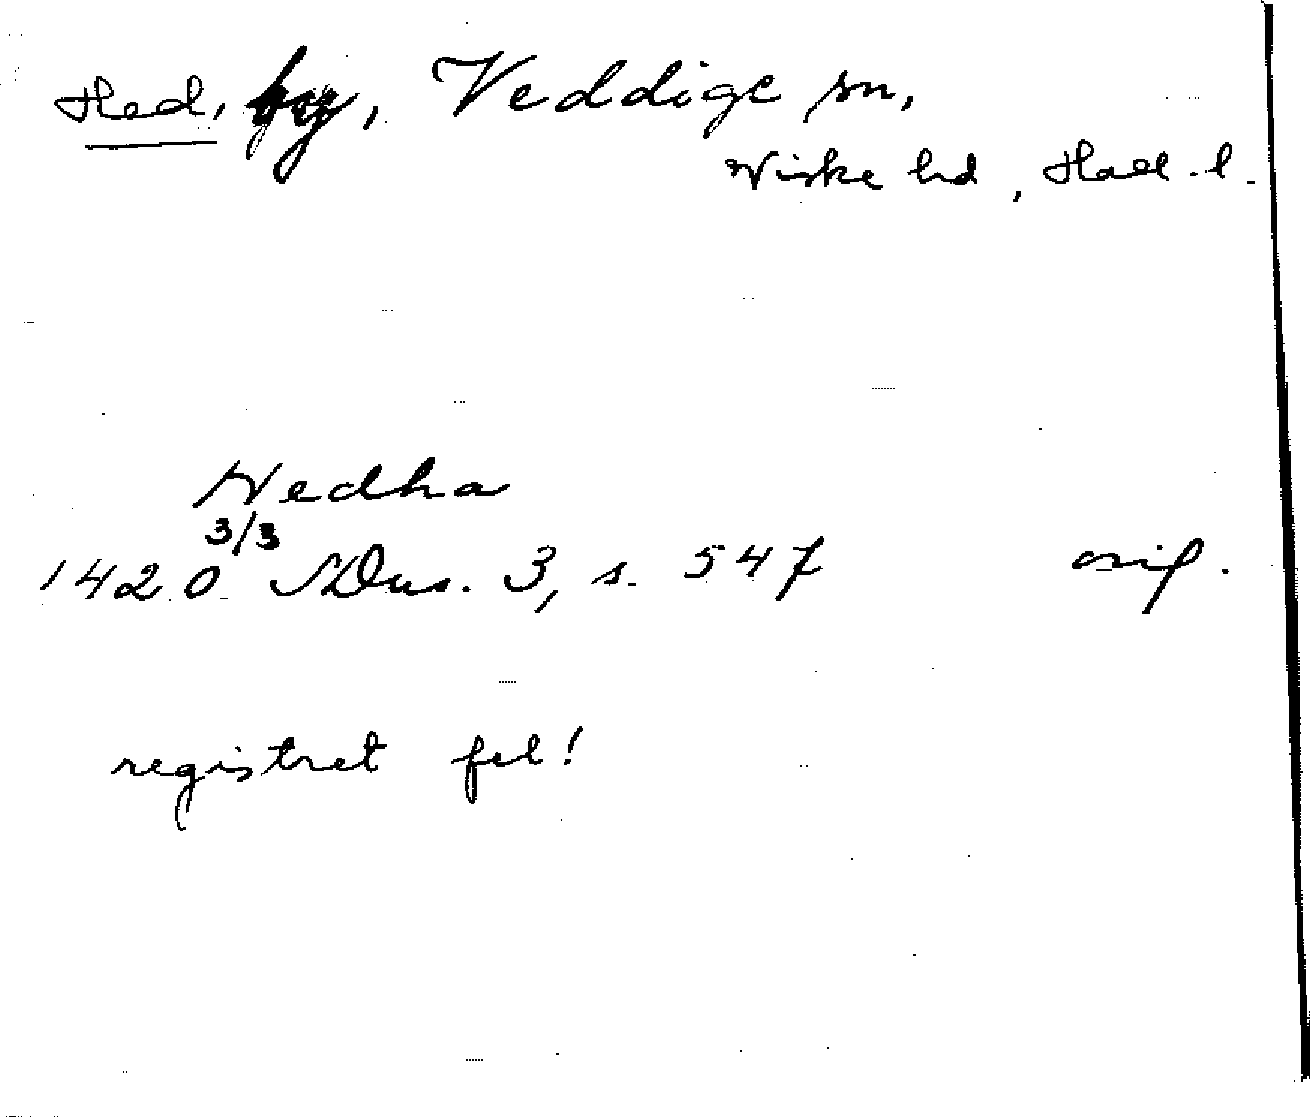 Hed, by, Veddige sn,
Viske hd, Hall. l.
Hedha
3/3
1420 SDns. 3, s. 547 orig.
registret fel!